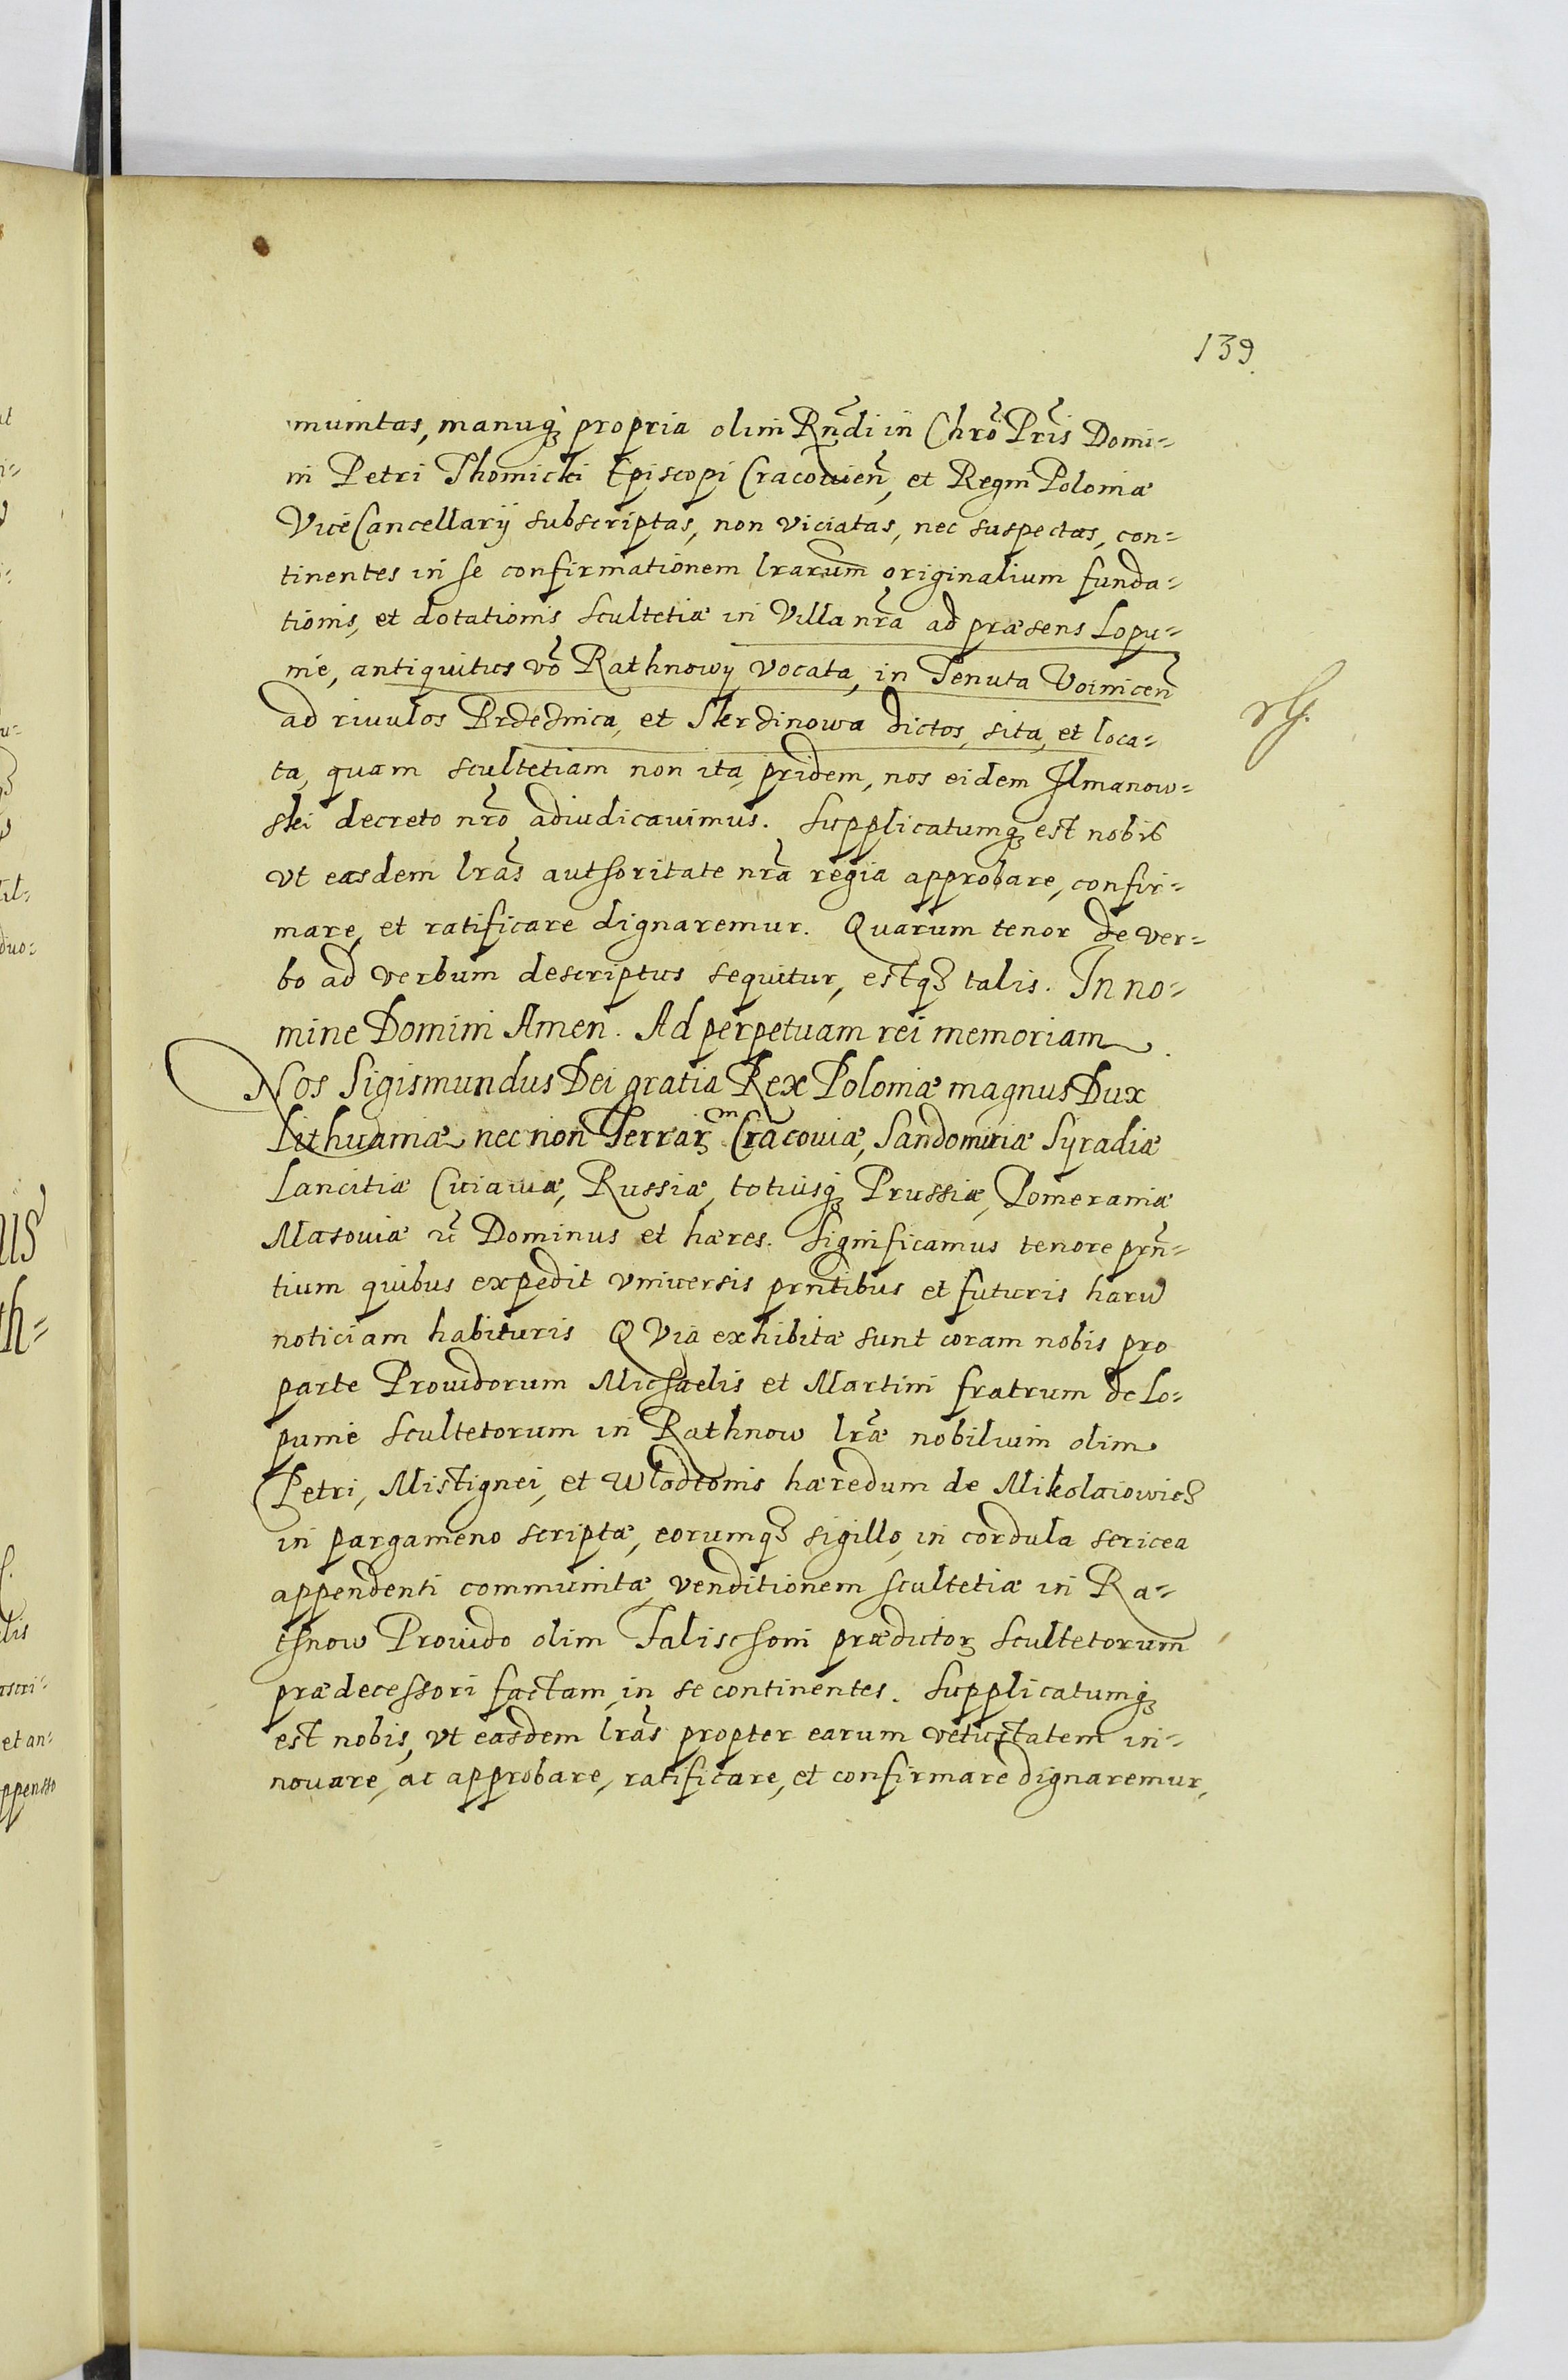 139.
munitas, manuq₃ propria olim Rn̄di in Chr̄o Pr̄is Domi-
ni Petri Thomicki Episcopi Cracouien̄, et Regni Poloniæ
ViceCancellarij subscriptas, non viciatas, nec suspectas, con-
tinentes in se confirmationem lrarum originalium funda-
tionis, et dotationis Scultetiæ in Villa nr̄a ad præsens Lopu-
nie, antiquitus vō Rathnowy vocata, in Tenuta Voinicen̄
ad riuulos Brdednica, et Skrdinowa dictos, sita, et loca-
ta, quam scultetiam non ita pridem, nos eidem Ilmanow-
ski decreto nr̄o adiudicauimus. Supplicatumq₃ est nobis
vt easdem lrās authoritate nr̄a regia approbare, confir-
mare, et ratificare dignaremur. Quarum tenor de ver-
bo ad verbum descriptus sequitur, estq₃ talis. In no-
mine Domini Amen. Ad perpetuam rei memoriam.
Nos Sigismundus Dei gratia Rex Poloniæ magnus Dux
Lithuaniæ nec non Terrarᵐ Cracouiæ, Sandomiriæ Syradiæ
Lancitiæ Cuiauiæ, Russiæ, totiusq₃ Prussiæ, Pomeraniæ
Masouiæ Dominus et hæres. Significamus tenore prn̄-
tium quibus expedit vniuersis prn̄tibus et futuris harū
noticiam habituris QVia exhibitæ sunt coram nobis pro
parte Prouidorum Michaelis et Martini fratrum de Lo-
punie Scultetorum in Rathnow lrǣ nobilium olim
Petri, Mistignei, et Wlodtonis hæredum de Mikolaiowic₃
in pargameno scriptæ, eorumq₃ sigillo, in cordula sericea
appendenti communitæ, venditionem scultetiæ in Ra-
thnow Prouido olim Falischoni prædictor₃ Scultetorum
prædecessori factam, in se continentes. Supplicatumq₃
est nobis, vt easdem lrās propter earum vetustatem in-
nouare, ac approbare, ratificare, et confirmare dignaremur,